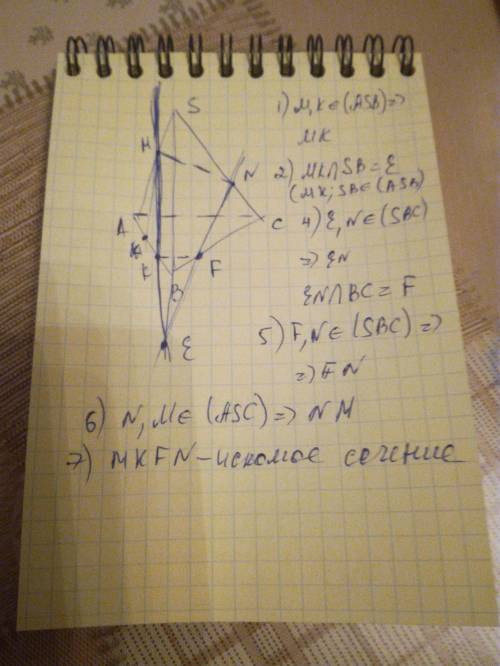 S
M
N
A
C
K
F
B
Е
1) M,K∈(ASB)=>
MK
2) MK∩SB=Е
(MK;SB∈(ASB)
4) Е,N∈(SBC)
=> ЕN
ЕN∩BC=F
5) F,N∈(SBC)=>
=> FN
6) N,M∈(ASC)=> NM
7) MKFN-искомое сечение